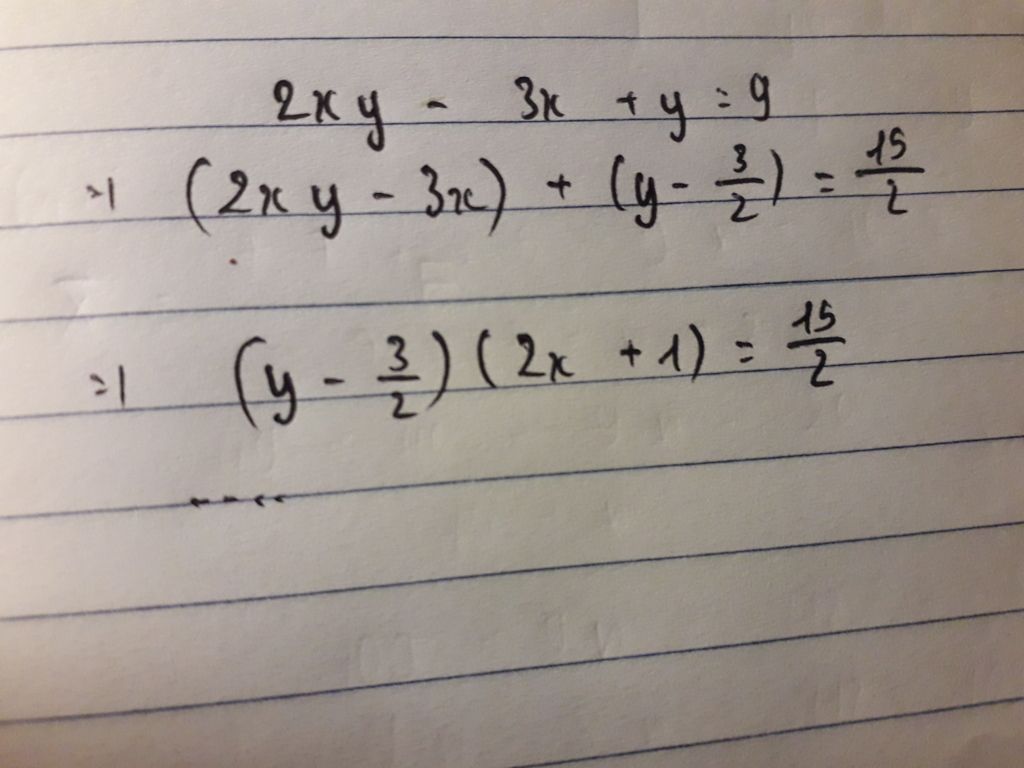 2xy - 3x + y = 9
=> (2xy - 3x) + (y - 3/2) = 15/2
=> (y - 3/2)(2x + 1) = 15/2
....